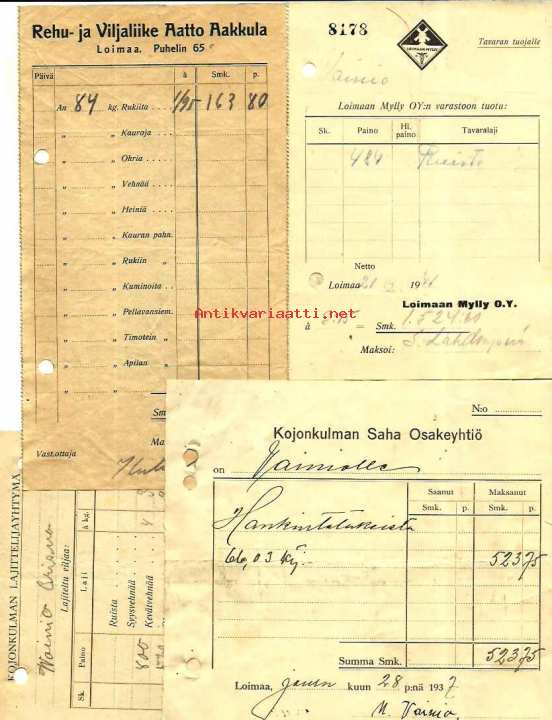 Rehu- ja Viljaliike Aatto Aakkula
Loimaa. Puhelin 65
Päivä à Smk. p.
An 84 kg. Rukiita 1/95 163 80
„ „ Kauroja
„ „ Ohria
„ „ Vehnää
„ „ Heiniä
„ „ Kauran pahn.
„ „ Rukiin „
„ „ Kuminoita
„ „ Pellavansiem.
„ „ Timotein „
„ „ Apilan „
Sm
Vast.ottaja Ma
8178
LOIMAAN MYLLY
Tavaran tuojalle
Vainio
Loimaan Mylly OY:n varastoon tuotu:
Sk. Paino Hl. paino Tavaralaji
484 Ruista
Netto
Loimaa 21 19
Loimaan Mylly O.Y.
à = Smk. 1.524:60
Maksoi:
Antikvariaatti.net
N:o
Kojonkulman Saha Osakeyhtiö
on Vainiolle
Saanut Maksanut
Smk. p. Smk. p.
Hankintatukeista
66,03 Kj. 523 75
Summa Smk. 523 75
Loimaa, jouu kuun 28 p:nä 1937
M. Vainio
KOJONKULMAN LAJITTELIJAYHTYMÄ
Vainio
Lajiteltu viljaa:
Sk Paino Laji à kg.
Ruista
Syysvehnää
800 Kevätvehnää 4